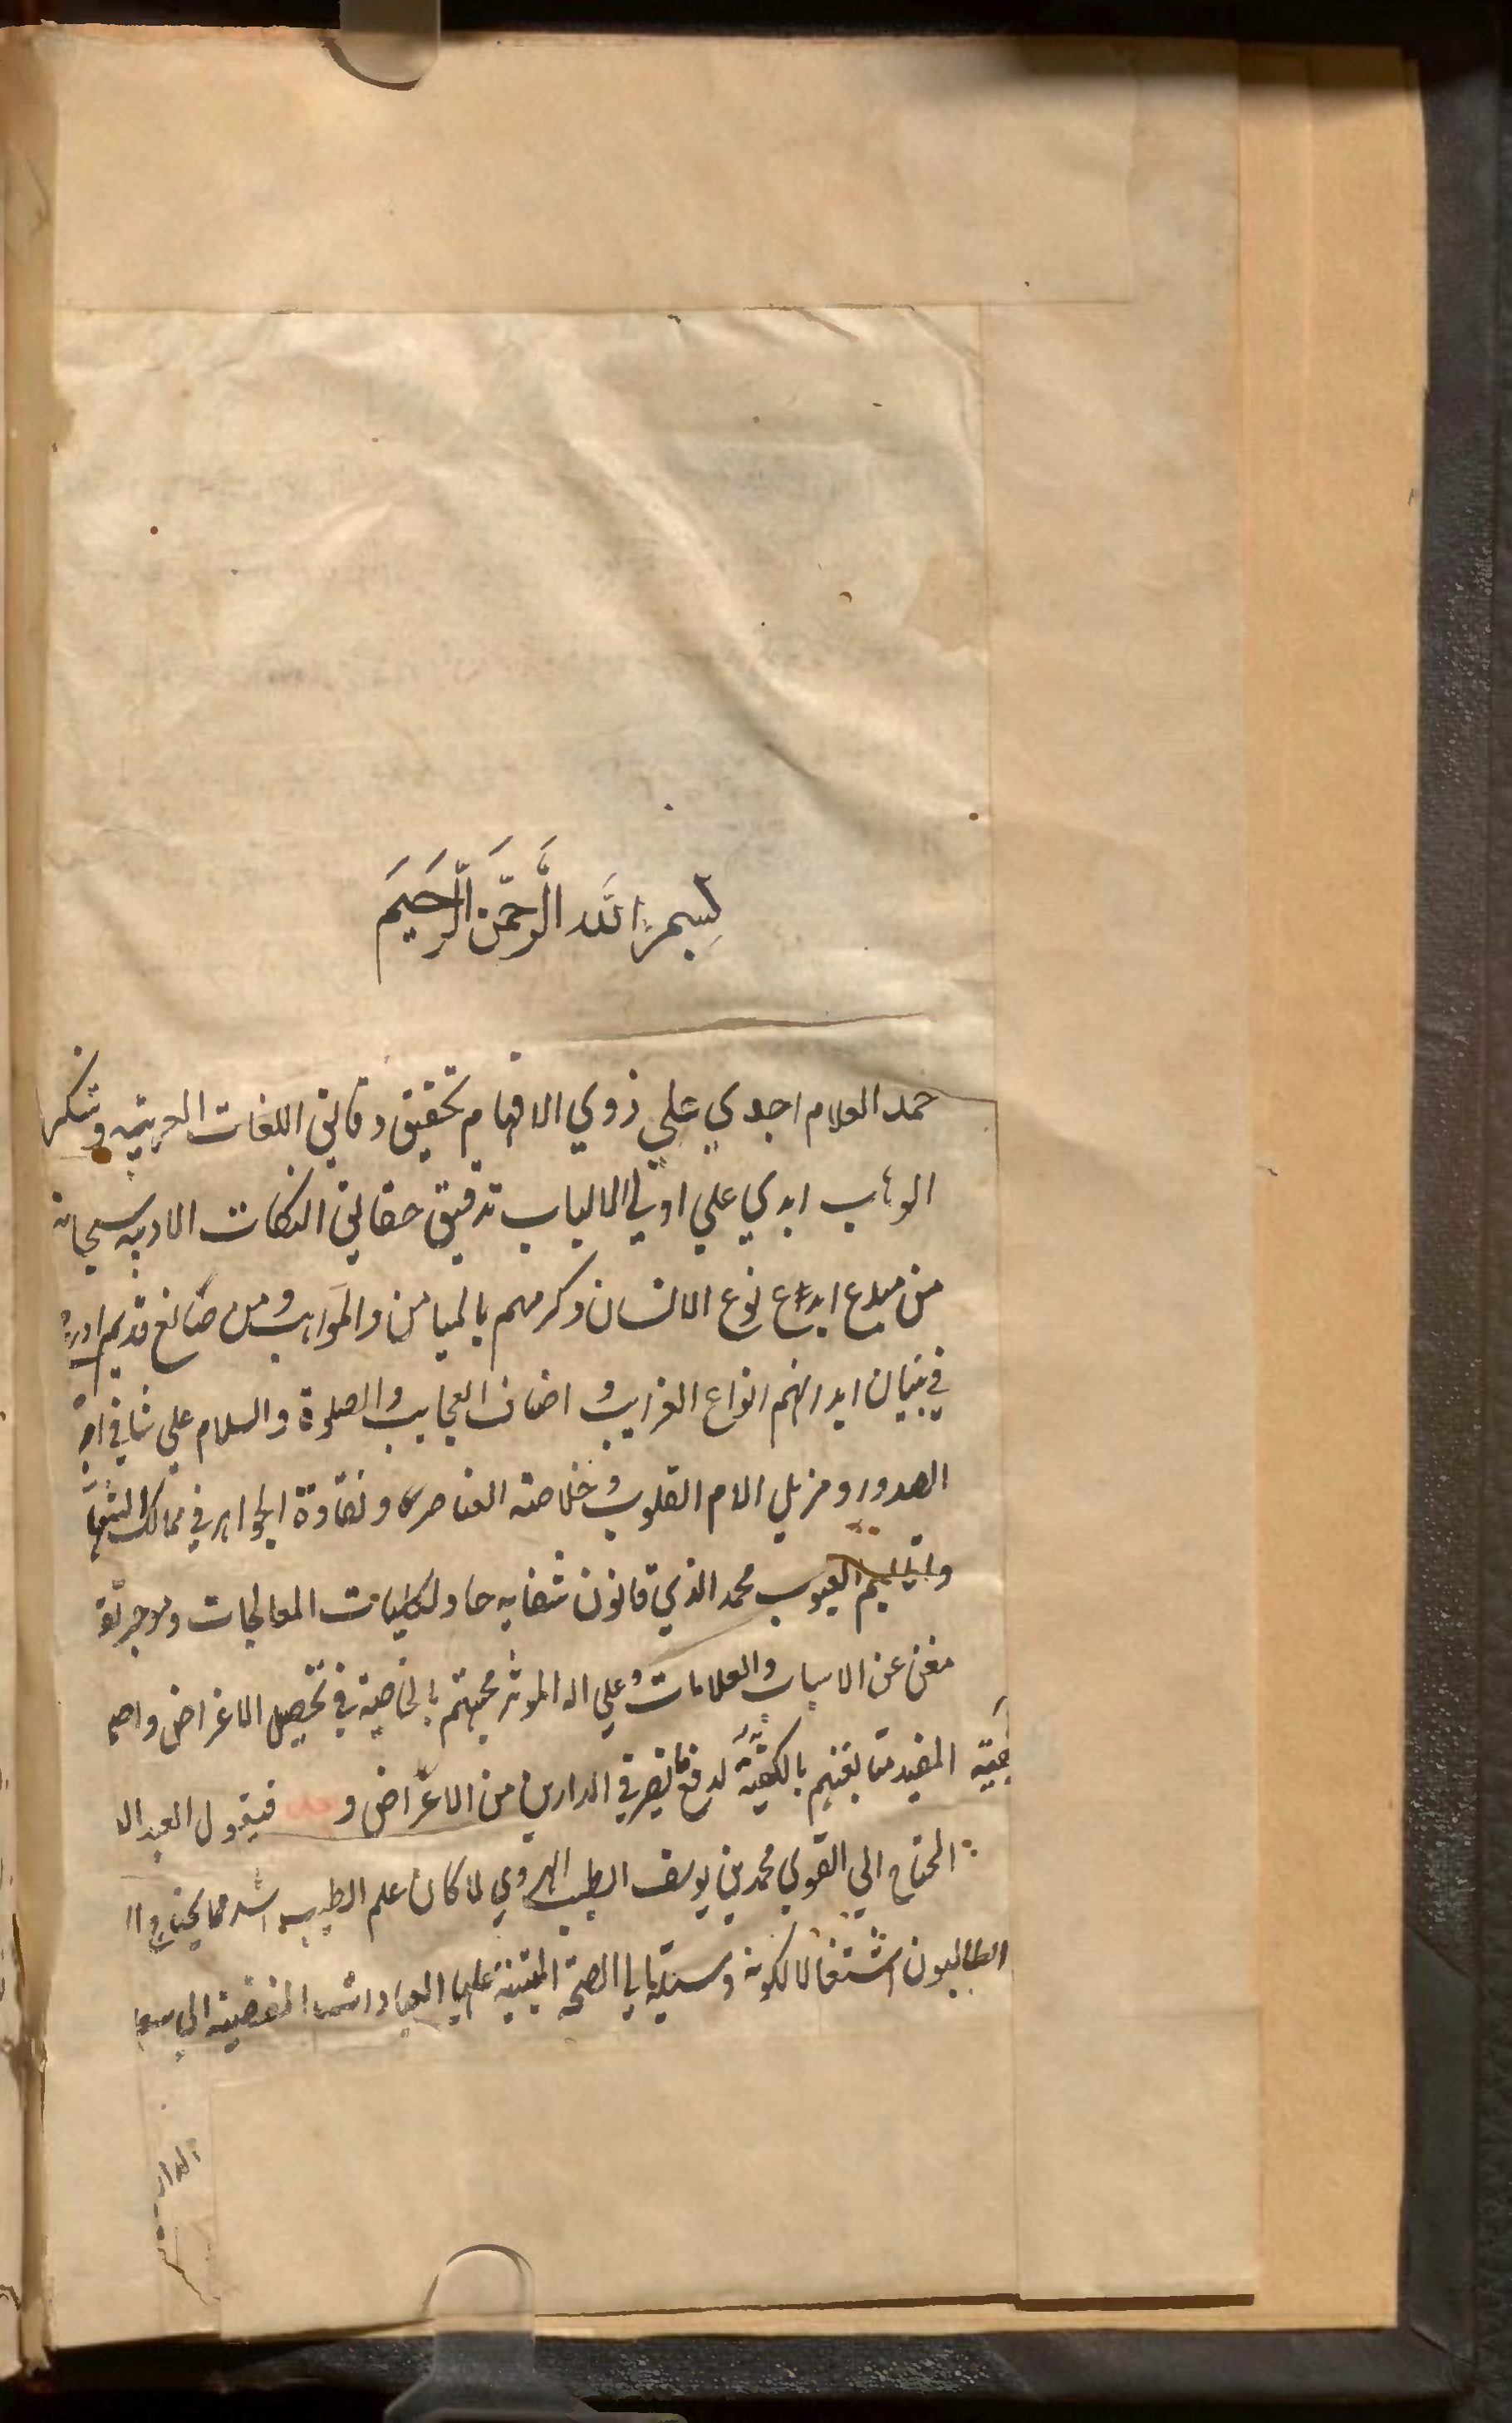 بسم الله الرحمن الرحيم
حمد العلام اجدي علي ذوي الافهام تحقيق دقائق اللغات العربيه وشكر
الوهاب ابدي علي اولي الالباب تدقيق حقائق النكات الادبيه سبحانه
من مبدع ابدع نوع الانسان وكرمهم بالميامن والمواهب ومن صانع قديم
في بنيان ابدانهم انواع الغرايب و اصناف العجايب والصلوة والسلام علي شافي
الصدور ومزيل الام القلوب و خلاصة العناصر ونقاوة الجواهر في ممالك
العيوب محمد الذي قانون شفايه حاو لكليات المعالجات وموجز
مغن عن الاسباب والعلامات وعلي اله الموثر محبتهم بالخاصية في تحصيل الاغراض
المفيد متابعتهم بالكيفية لدفع ما يضر في الدارين من الاعراض و فيقول العبد
المحتاج الي القوي محمد بن يوسف الطبيب الهروي لما كان علم الطب اشد مما يحتاج
الطالبون اشتغالا لكونه وسيلة الي الصحة المبتنية عليها العبادات المفضية الي
الدار